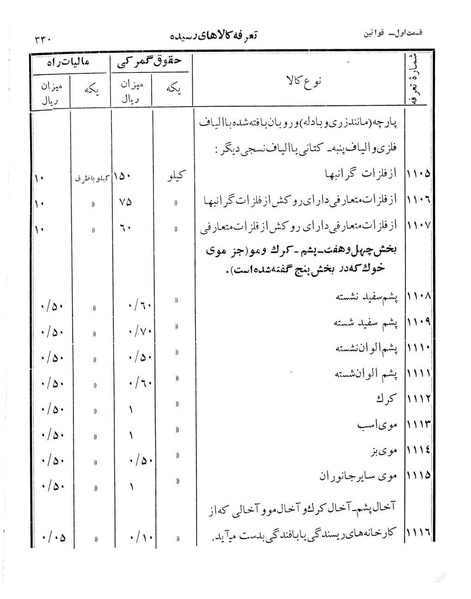 قسمت اول ـ قوانین تعرفه کالاهای رسیده ۳۳۰
شمارۀ تعرفه نوع کالا حقوق گمرکی مالیات راه
یکه میزان ریال یکه میزان ریال
پارچه (مانند زری و بادله) و روبان بافته شده با الیاف
فلزی و الیاف پنبه ـ کتانی یا الیاف نسجی دیگر :
۱۱۰۵ از فلزات گرانبها کیلو ۱۵۰ کیلو باظرف ۱۰
۱۱۰۶ از فلزات متعارفی دارای روکش از فلزات گرانبها » ۷۵ » ۱۰
۱۱۰۷ از فلزات متعارفی دارای روکش از فلزات متعارفی » ۶۰ » ۱۰
بخش چهل و هفت ـ پشم ـ کرك و مو (جز موی
خوك که در بخش پنج گفته شده است).
۱۱۰۸ پشم سفید نشسته » ۰/۶۰ » ۰/۵۰
۱۱۰۹ پشم سفید شسته » ۰/۷۰ » ۰/۵۰
۱۱۱۰ پشم الوان نشسته » ۰/۵۰ » ۰/۵۰
۱۱۱۱ پشم الوان شسته » ۰/۶۰ » ۰/۵۰
۱۱۱۲ کرك » ۱ » ۰/۵۰
۱۱۱۳ موی اسب » ۱ » ۰/۵۰
۱۱۱۴ موی بز » ۰/۵۰ » ۰/۵۰
۱۱۱۵ موی سایر جانوران » ۱ » ۰/۵۰
آخال پشم ـ آخال کرك و آخال مو و آخالی که از
۱۱۱۶ کارخانه های ریسندگی یا بافندگی بدست میآید. » ۰/۱۰ » ۰/۰۵